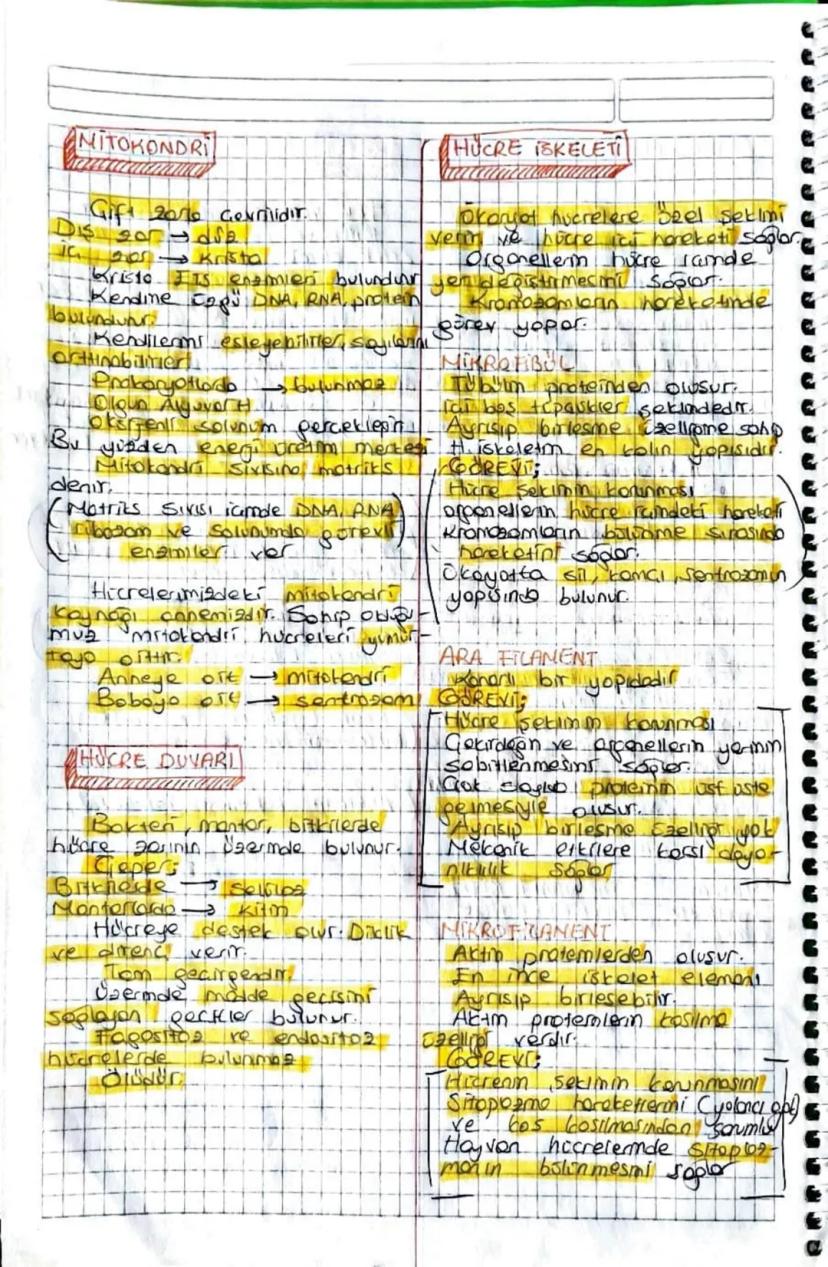 MİTOKONDRİ
Çift zarla çevrilidir.
Dış zar → düz
İç zar → Krista
Krista ETS enzimleri bulundurur
Kendine özgü DNA, RNA, protein
bulundurur.
Kendilerini eşleyebilirler, sayılarını
arttırabilirler
Prokaryotlarda → bulunmaz
Olgun Alyuvar H
Oksijenli solunum gerçekleşir.
Bu yüzden enerji üretim merkezi
Mitokondri sıvısına matriks
denir.
(Matriks sıvısı içinde DNA, RNA
ribozom ve solunumda görevli
enzimler var)
Hücrelerimizdeki mitokondri
kaynağı annemizdir. Sahip olduğu-
muz mitokondri hücreleri yumur-
taya aittir.
Anneye ait → mitokondri
Babaya ait → sentrozom
HÜCRE DUVARI
Bakteri, mantar, bitkilerde
hücre zarının üzerinde bulunur.
Çeper;
Bitkilerde → selüloz
Mantarlarda → kitin
Hücreye destek olur. Diklik
ve direnç verir.
Tam geçirgendir.
Üzerinde madde geçişini
sağlayan geçitler bulunur.
Fagositoz ve endositoz
hücrelerde bulunmaz
Ölüdür.
HÜCRE İSKELETİ
Ökaryot hücrelere özel şeklini
verir ve hücre içi hareketi sağlar.
Organellerin hücre içinde
yer değiştirmesini sağlar.
Kromozomların hareketinde
görev yapar.
MİKROTİBÜL
Tübülin proteinden oluşur.
içi boş tüpçükler şeklindedir.
Ayrışıp birleşme özelliğine sahip
H. iskeletin en kalın yapısıdır.
GÖREVİ;
(Hücre şeklinin korunması
organellerin hücre içindeki hareketi
Kromozomların bölünme sırasında
hareketini sağlar.
Ökayotta sil, kamçı, sentrozomun
yapısında bulunur.)
ARA FİLAMENT
bir yapıdadır
GÖREVİ;
[Hücre şeklinin korunması
Çekirdeğin ve organellerin yerinin
sabitlenmesini sağlar.
Çok sayıda proteinin üst üste
gelmesiyle oluşur.
Ayrışıp birleşme özelliği yok
Mekanik etkilere karşı daya-
nıklılık sağlar]
MİKROFİLAMENT
Aktin proteinlerden oluşur.
En ince iskelet elemanı
Ayrışıp birleşebilir.
Aktin proteinlerin kasılma
özelliği vardır.
GÖREVİ;
[Hücrenin şeklinin korunmasını
Sitoplazma hareketlerini (yalancı ayak)
ve kas kasılmasından sorumlu
Hayvan hücrelerinde sitoplaz-
manın bölünmesini sağlar]